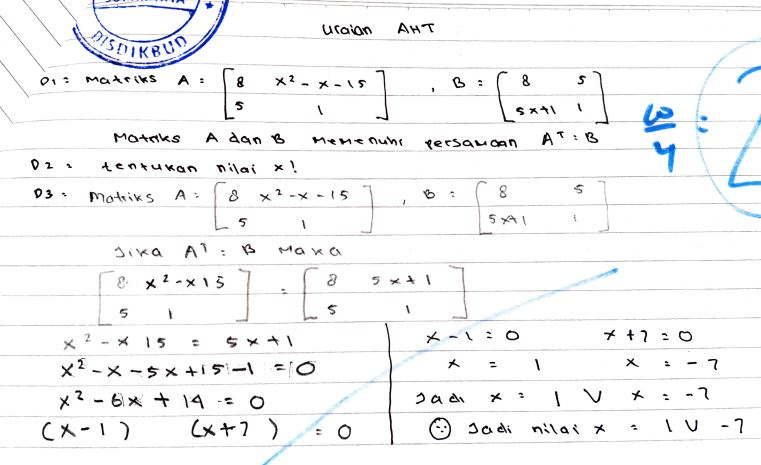 DISDIKBUD
Uraian AHT
D1 : Matriks A = [ 8 x² - x - 15 ; 5 1 ] , B = [ 8 5 ; 5x+1 1 ]
Matriks A dan B memenuhi persamaan Aᵀ = B
D2 : tentukan nilai x!
D3 : Matriks A = [ 8 x² - x - 15 ; 5 1 ] , B = [ 8 5 ; 5x+1 1 ]
Jika Aᵀ = B Maka
[ 8 x² - x 15 ; 5 1 ] = [ 8 5x+1 ; 5 1 ]
x² - x 15 = 5x+1
x² - x - 5x + 15 - 1 = 0
x² - 6x + 14 = 0
(x-1) (x+7) = 0
x - 1 = 0 x + 7 = 0
x = 1 x = -7
Jadi x = 1 V x = -7
Jadi nilai x = 1 V -7